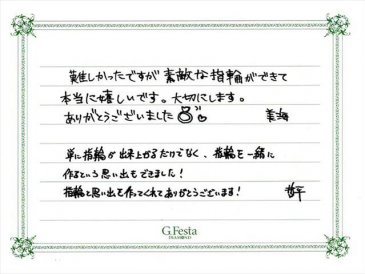 難しかったですが素敵な指輪ができて
本当に嬉しいです。大切にします。
ありがとうございました
美海
単に指輪が出来上がるだけでなく、指輪を一緒に
作るという思い出もできました!
指輪と思い出を作ってくれてありがとうございます!
G.Festa
DIAMOND